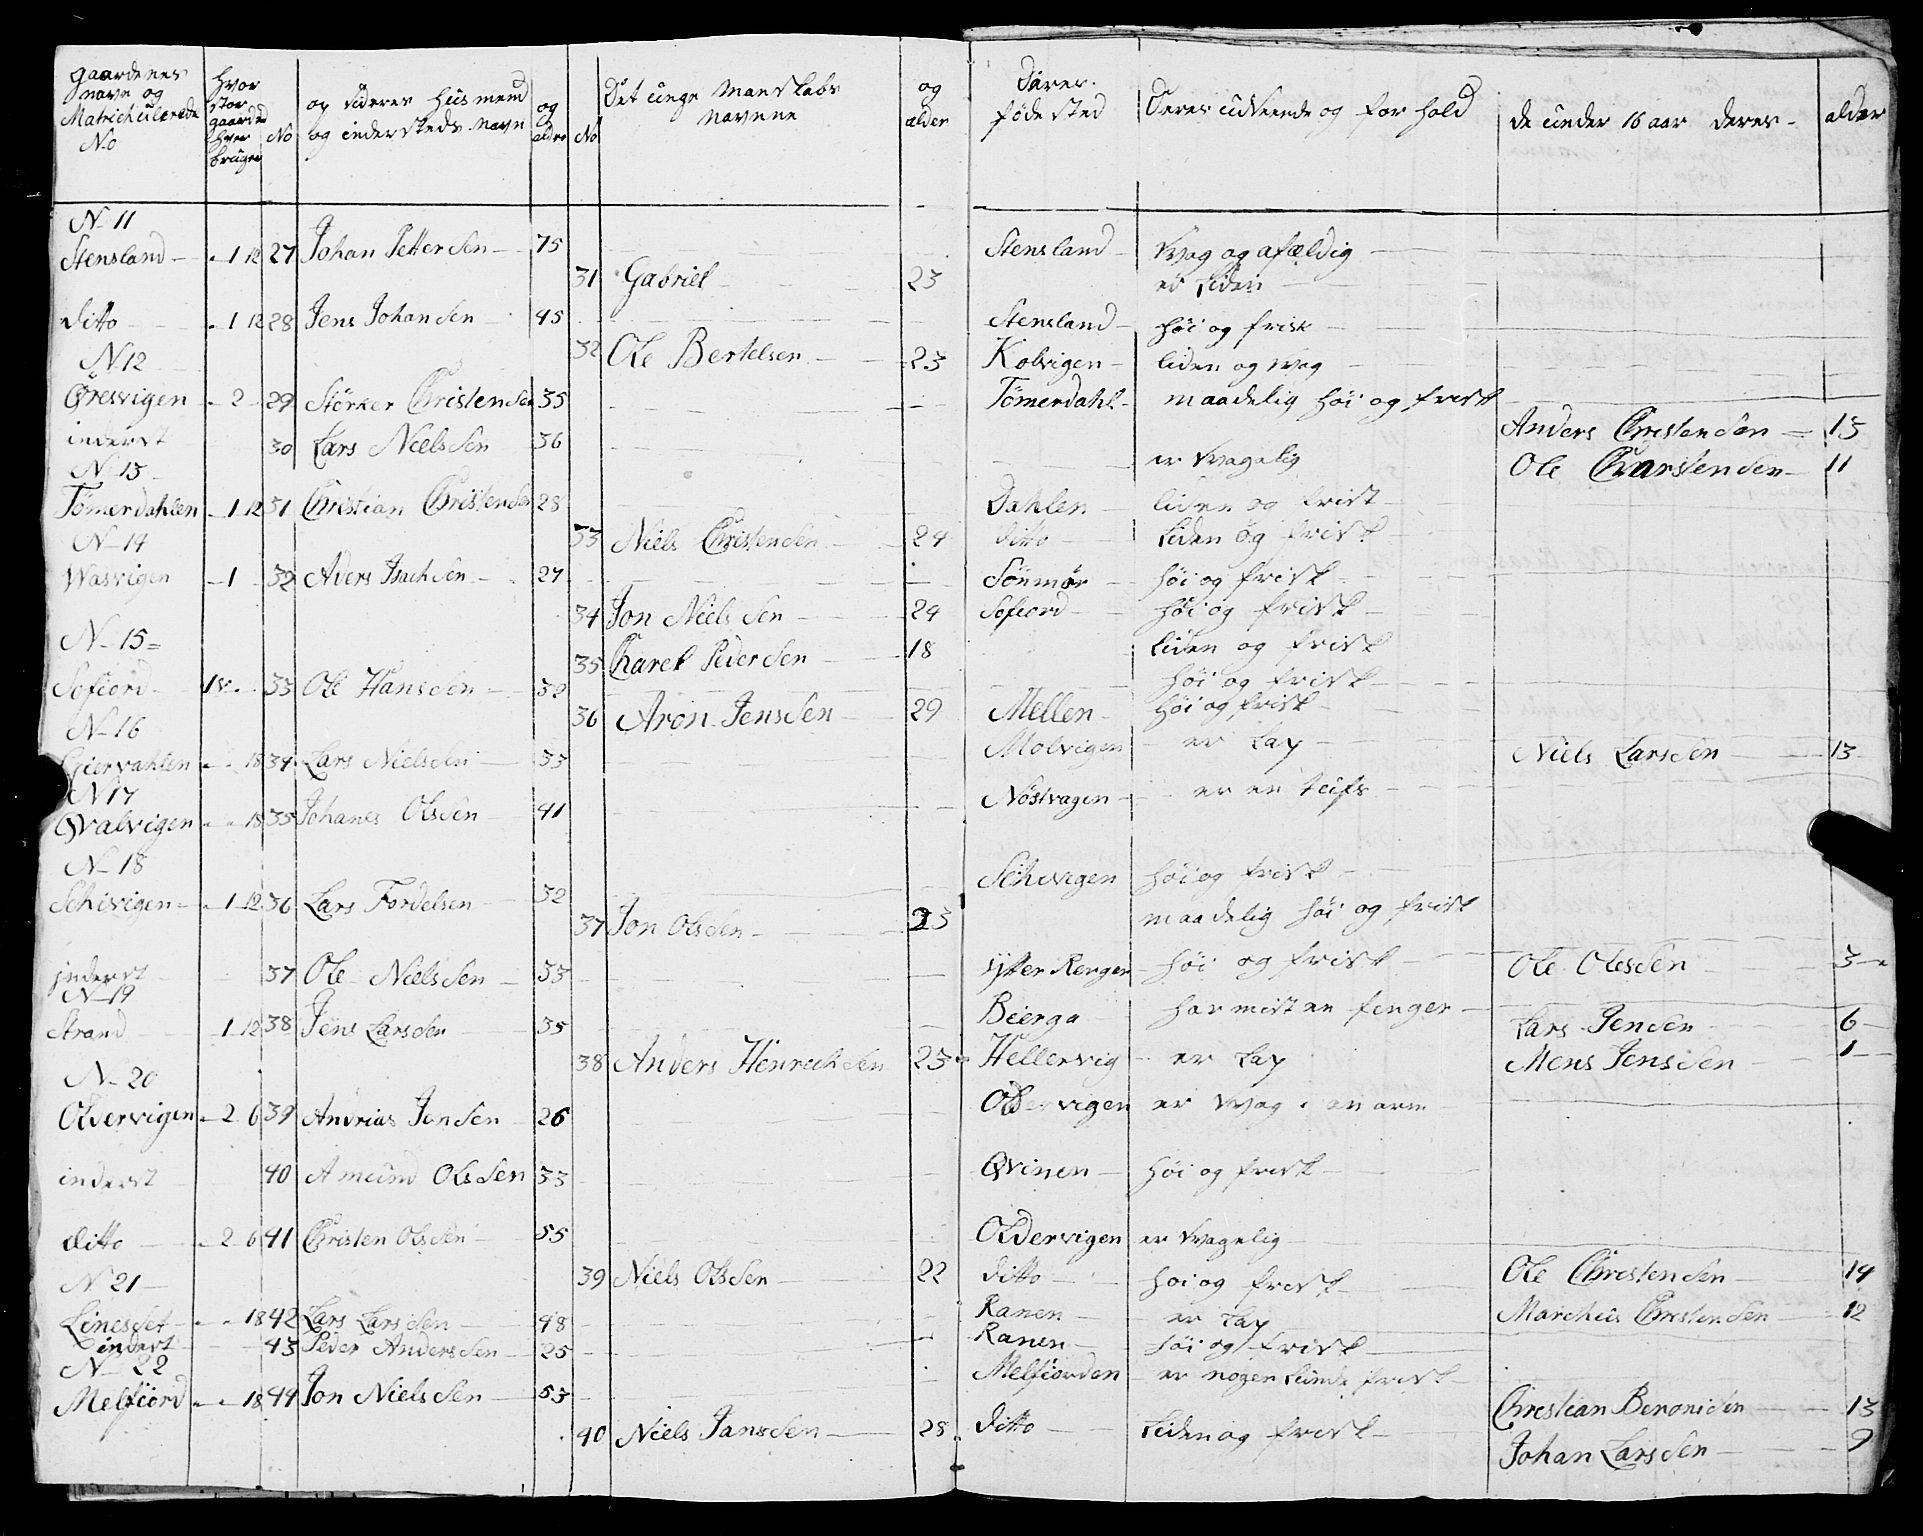 Gaardenes navn og Matrichulerede No | Hvor stor gaarded hver bruger | No | og videres Husmend og indersteds Navn | og alder | No | Det unge Manskabs Navnene | og alder | Deres fødested | Deres udseende og forhold | de under 16 aar deres | alder
N 11
Stensland | 1 12 | 27 | Johan Pettersen | 75 | Stensland | svag og afældig
31 | Gabriel | 23 | er liden
Ditto | 1 12 | 28 | Jens Johansen | 45 | Stensland | høi og frisk
N 12 | 32 | Ole Bertelsen | 23 | Kolvigen | liden og svag
Øresvigen | 2 | 29 | Störker Christensen | 35 | Tömerdahl | maadelig høi og frisk
Anders Christensen | 13
inderst | 30 | Lars Nielssen | 36 | er svagelig | Ole Charstensen | 11
N 13
Tömerdahlen | 1 12 | 31 | Christian Christensen | 28 | Dahlen | liden og frisk
N 14 | 33 | Niels Christensen | 24 | ditto | Liden og frisk
Wasvigen | 1 | 32 | Aders Isachsen | 27 | Sönmør | høi og frisk
34 | Jon Nielssen | 24 | Sofiord | høi og frisk
N 15
35 | Charel Pedersen | 18 | Liden og frisk
Sofiord | 1 | 33 | Ole Hanssen | 32 | høi og frisk
N 16 | 36 | Aron Jenssen | 29 | Mellen | høi og frisk
34 | Lars Nielsen | 33 | Molvigen | er Lap | Niels Larssen | 13
N 17
Qvalvigen | 18 | 35 | Johanes Olssen | 41 | Nöstvagen
N 18
Schivigen | 1 12 | 36 | Lars Fordelsen | 32 | Schivigen | høi og frisk
37 | Jon Olssen | 23 | maadelig høi og frisk
inderst | 37 | Ole Nielssen | 33 | Ytter Renger | høi og frisk | Ole Olessen | 3
N 19
Strand | 1 12 | 38 | Jens Larssen | 35 | Beierga | har mist en fenger | Lars Jensen | 6
38 | Anders Henrechsen | 23 | Hellervig | er Lap | Mens Jenssen | 1
N 20
Oldervigen | 2 6 | 39 | Andrias Jensen | 26 | Oldervigen | er svag i en arm
inderst | 40 | Amund Olssen | 33 | Qvinen | høi og frisk
ditto | 2 6 | 41 | Christen Olssen | 55 | Oldervigen | er svagelig
N 21 | 39 | Niels Olssen | 22 | ditto | høi og frisk | Ole Christensen | 14
Linesset | 18 | 42 | Lars Larssen | 48 | Ranen | er Lap | Marchus Christensen | 12
inderst | 43 | Peder Anderssen | 25 | Ranen | høi og frisk
N 22
Melfiord | 18 | 44 | Jon Nielssen | 53 | Melfiorden | er nogenlunde frisk
Chrestian Beronisen | 13
40 | Niels Janssen | 28 | ditto | Liden og frisk
Johan Larssen | 9